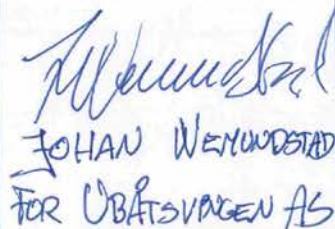 JOHAN WEMUNDSTAD
FOR UBÅTSVINGEN AS